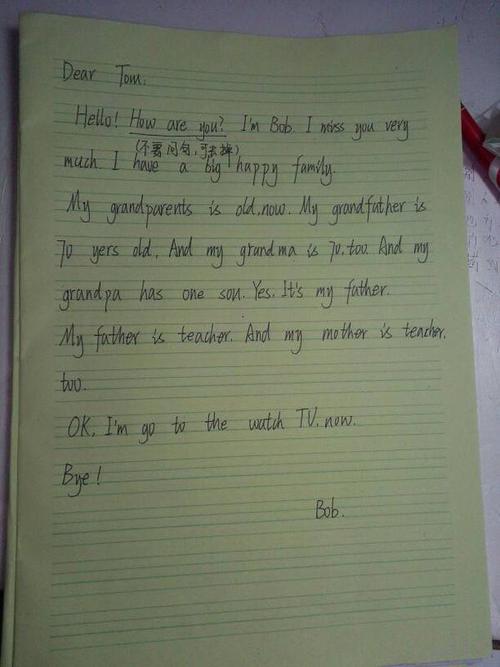 Dear Tom.
Hello! How are you? I'm Bob. I miss you very
(不要问句,可去掉)
much. I have a big happy family.
My grandparents is old.now. My grandfather is
70 yers old. And my grandma is 70.too. And my
grandpa has one son. Yes. It's my father.
My father is teacher. And my mother is teacher.
too.
OK, I'm go to the watch TV.now.
Bye!
Bob.